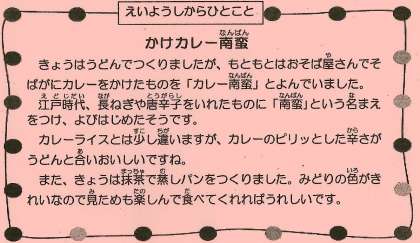 えいようしからひとこと
かけカレー南蛮
きょうはうどんでつくりましたが、もともとはおそば屋さんでそ
ばがにカレーをかけたものを「カレー南蛮」とよんでいました。
江戸時代、長ねぎや唐辛子をいれたものに「南蛮」という名まえ
をつけ、よびはじめたそうです。
カレーライスとは少し違いますが、カレーのピリッとした辛さが
うどんと合いおいしいですね。
また、きょうは抹茶で蒸しパンをつくりました。みどりの色がき
れいなので見ためも楽しんで食べてくれればうれしいです。